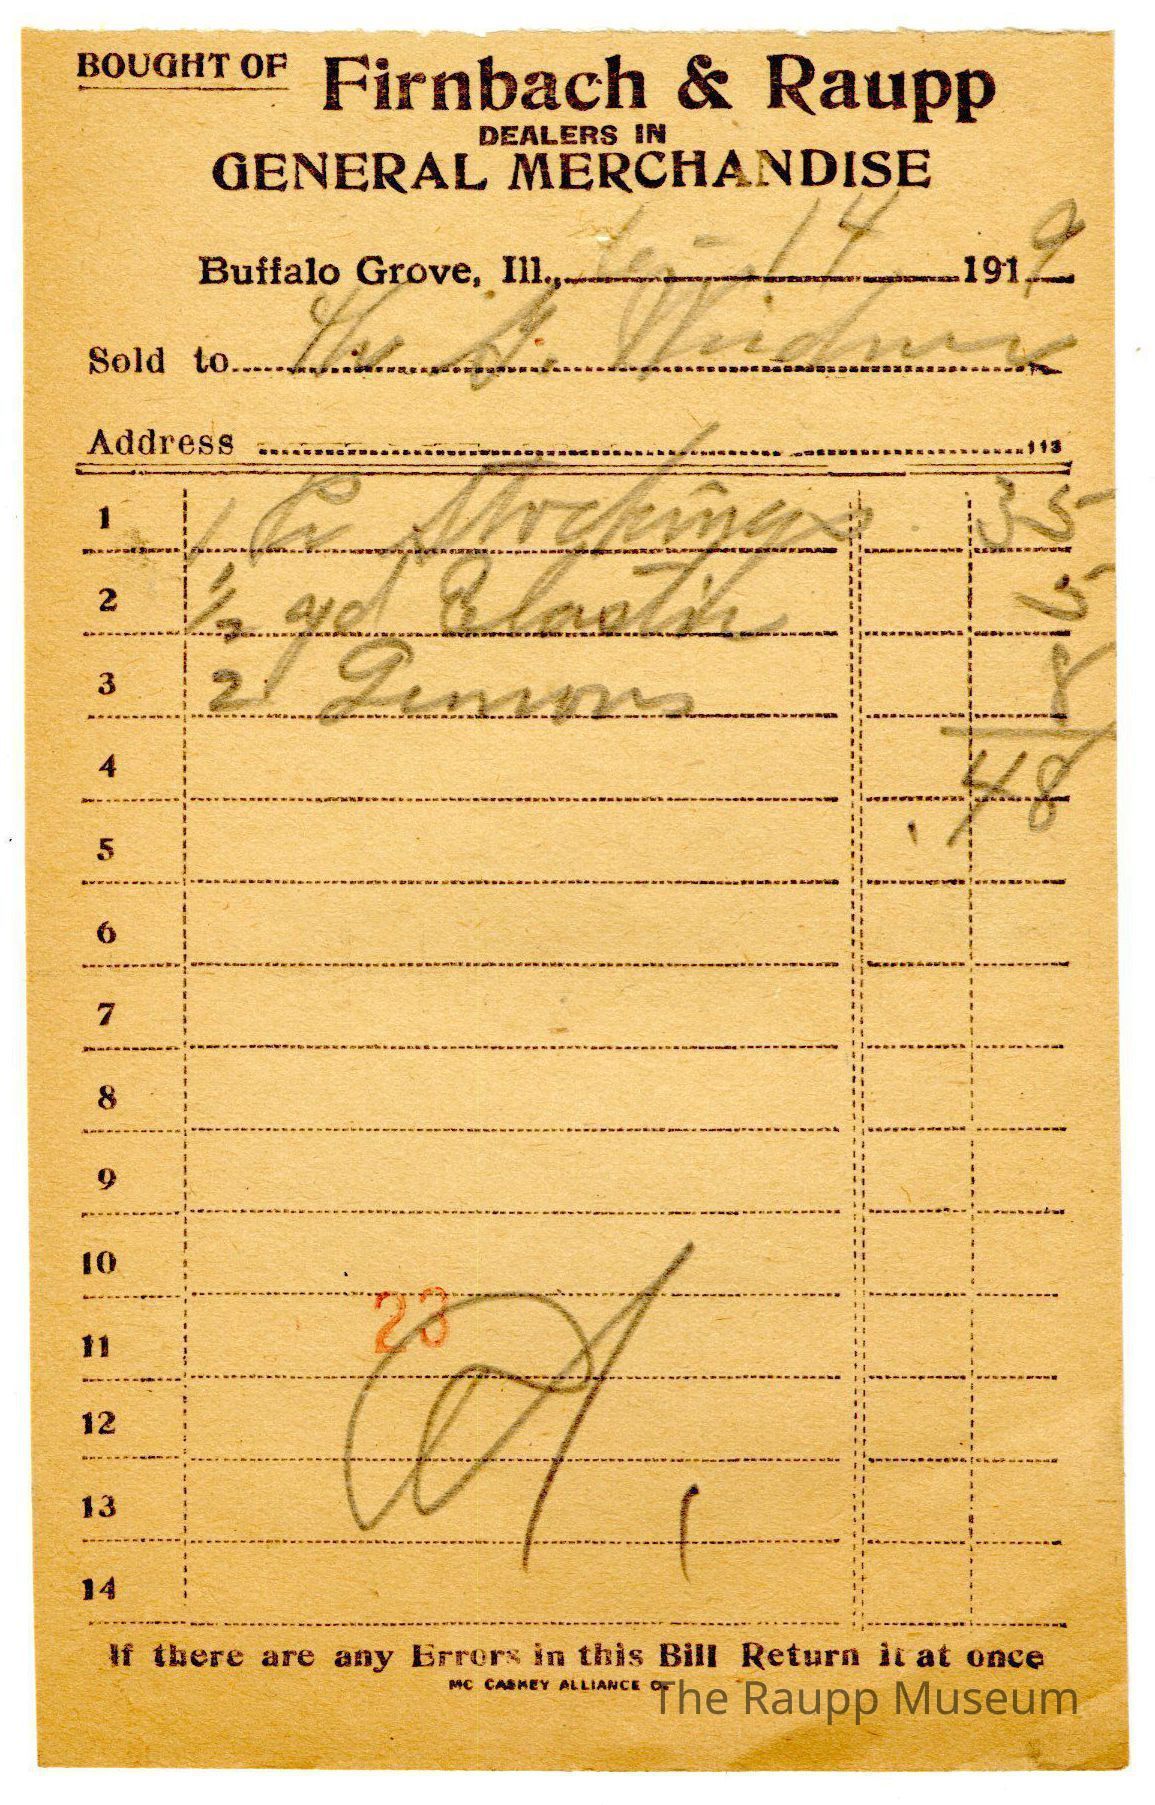 BOUGHT OF Firnbach & Raupp
DEALERS IN
GENERAL MERCHANDISE
Buffalo Grove, Ill., 14 1919
Sold to G. Weidner
Address 113
1 1 Pr Stockings 35
2 1/2 yd Elastic 5
3 2 Lemons 8
4 .48
5
6
7
8
9
10
23
11
12
13
14
If there are any Errors in this Bill Return it at once
MC CASKEY ALLIANCE O.
The Raupp Museum